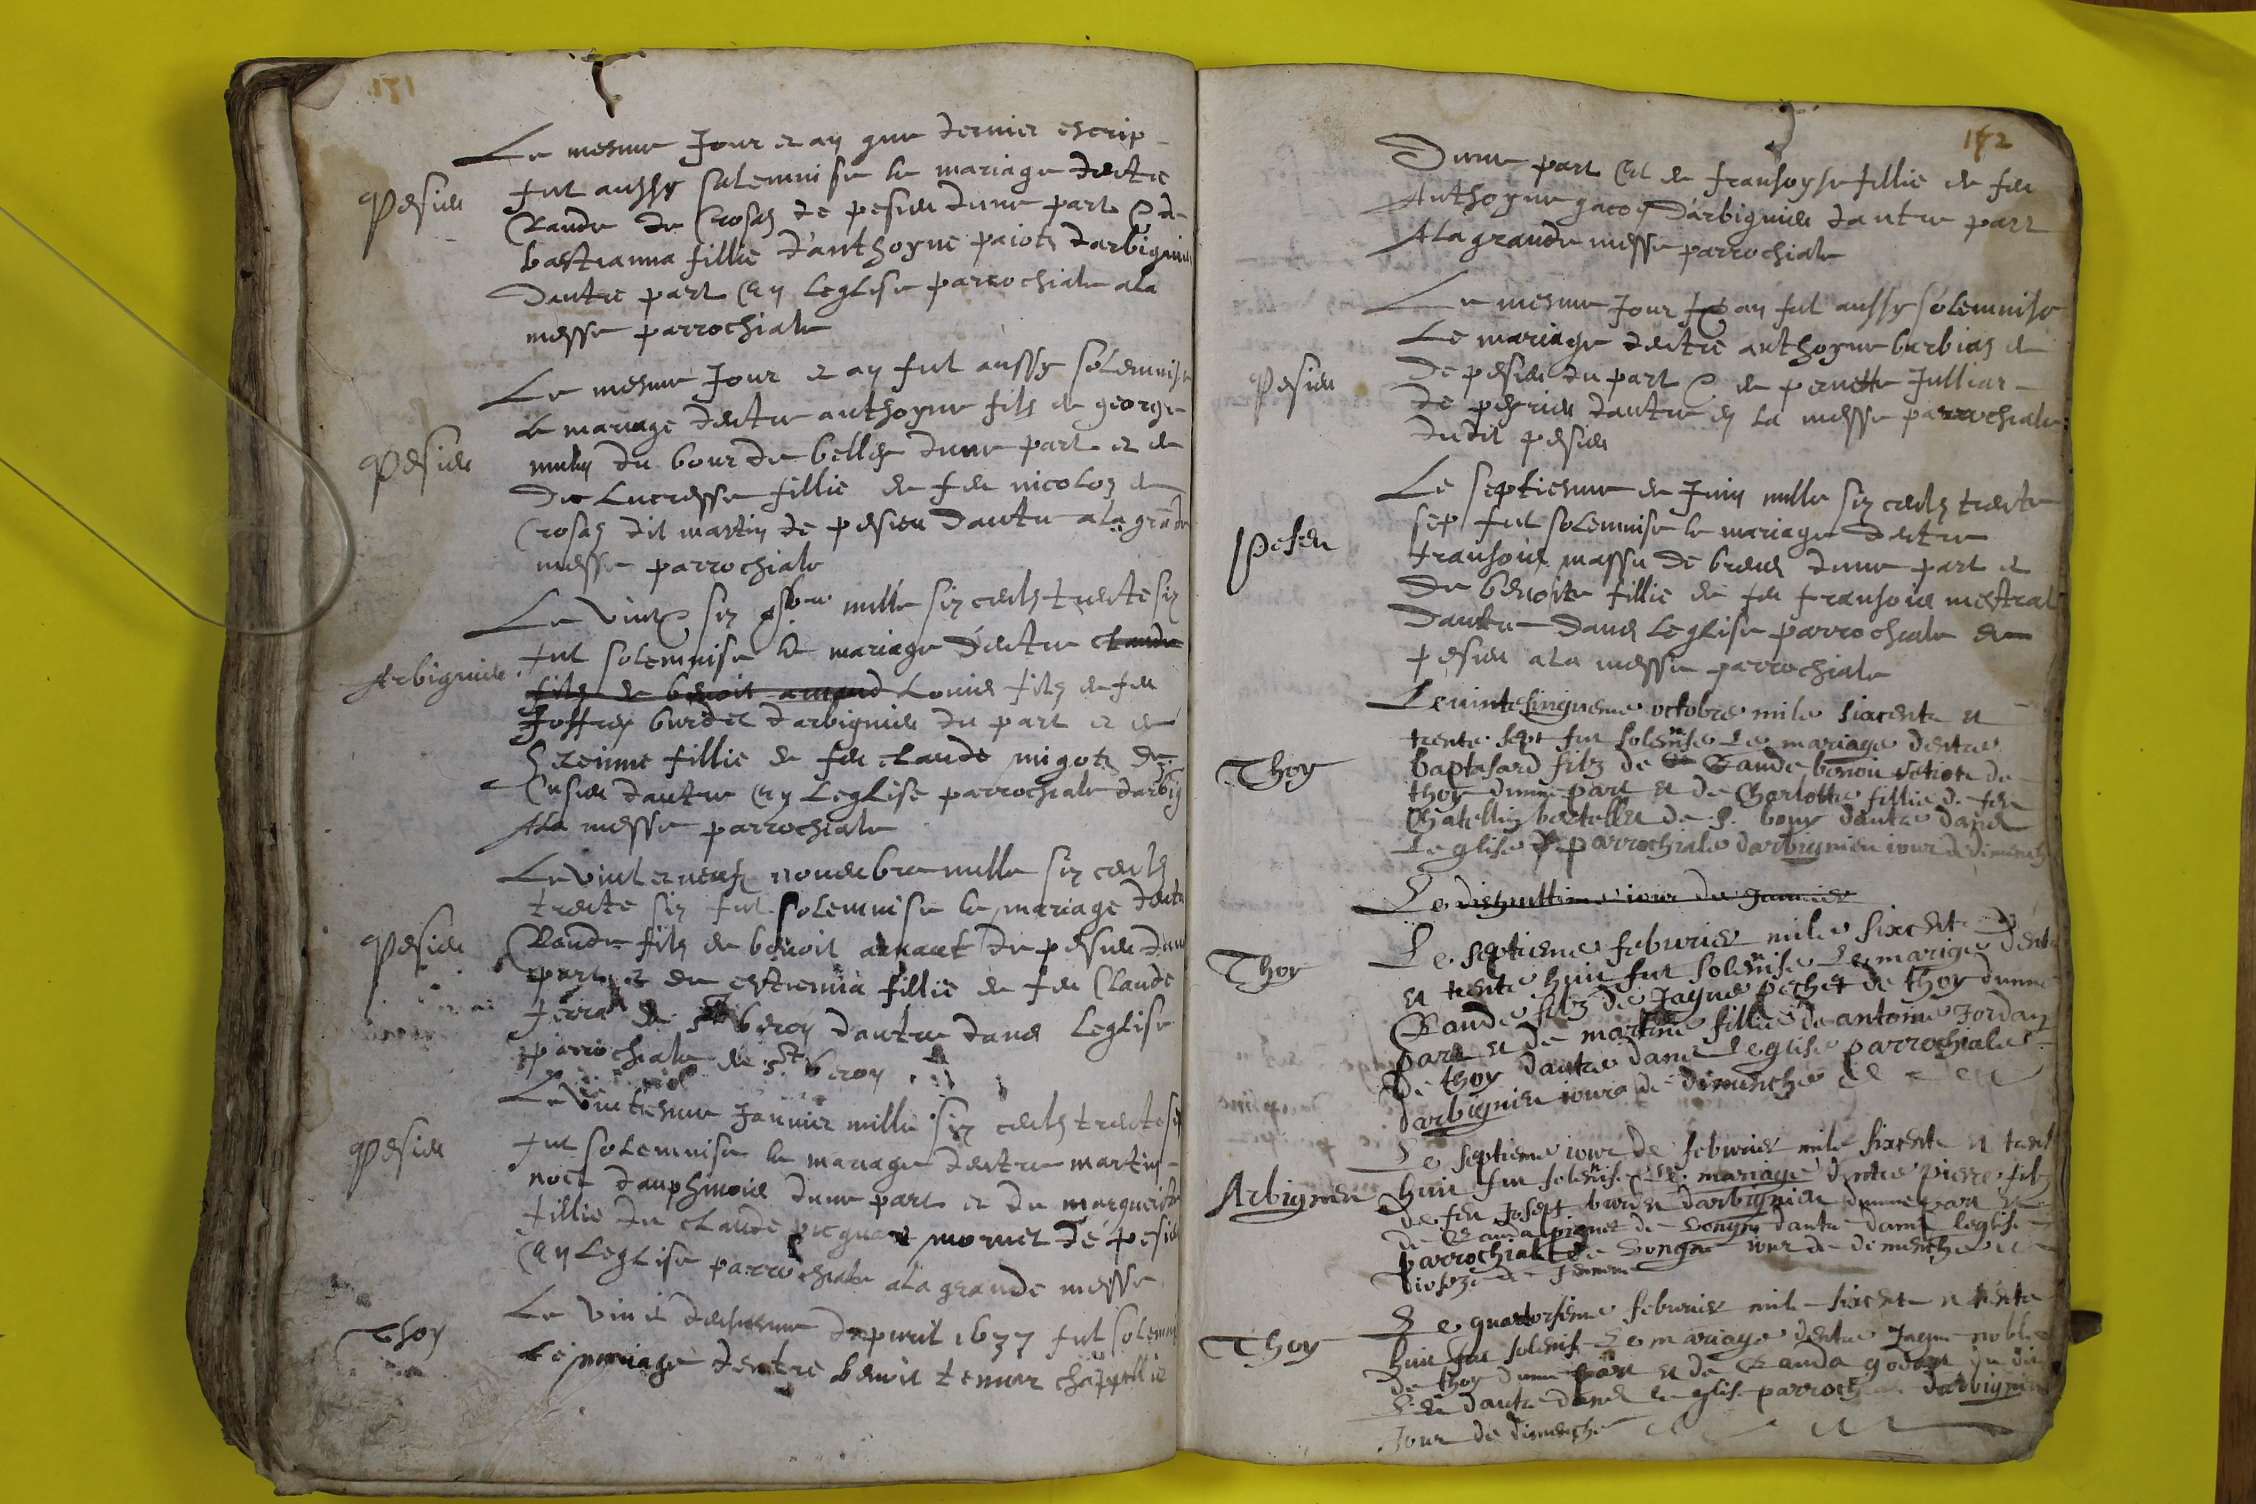 171
Le mesme Jour et an que dernier escrip
Pesieu
fut aussy solemnise le mariage dentre
Claude de Crosaz de pesieu dune part & de
bastianna fillie d'anthoyne paiotz darbignieu
dautre part en leglise parrochiale a la
messe parrochiale
Le mesme Jour et an fut aussy solemnise
Pesieu
le mariage dentre anthoyne fils de george
du bour de belley dune part et de
De Lucresse fillie de feu nicoloz de
Crosaz dit martin de pesieu dautre a la grande
messe parrochiale
Le vint & six mille six centz trente six
Arbignieu
fut solemnise le mariage d'entre Claude
filz de benoit Louis filz de feu
Joffrey burdet darbignieu du part et de
fillie de feu claude migotz de
Cusieu dautre en leglise parrochiale darbig
A la messe parrochiale
Le vint et neufz novenbre mille six centz
trente six fut solemnise le mariage dentre
Pesieu
Claude filz de benoit de pesieu dune
part et de estienna fillie de feu Claude
de St beron dautre dans leglise
parrochiale de St beron
Le vintiesme Janvier mille six centz trente sep
Pesieu
fut solemnise le mariage dentre martin
dauphinois dune part et de marguerite
fillie du claude mornet de pesieu
en leglise parrochiale a la grande messe
Le vint 1637 fut solemni
Thoy
le mariage dentre benoit
172
Dune part et de fransoyse fillie de feu
Anthoyne d'arbignieu dautre part
A la grande messe parrochiale
Le mesme Jour & an fut aussy solemnise
Le mariage dentre anthoyne de
Pesieu
De pesieu du part & de pernette Julliar
De dautre en la messe parrochiale
dudit pesieu
Le septiesme de Juin mille six centz trente
sep fut solemnise le mariage dentre
Pesieu
fransois massu de brens dune part et
De benoite fillie de feu fransois mestral
Dautre Dans leglise parrochiale de
pesieu a la messe parrochiale
Le vintesinqueme octobre mile sixcents et
trente sept fut solemnise le mariage dentre
Thoy
baptasard filz de Claude de
thoy dunne part et de Charlotte fillie de feu
de S. bony dautre dans
leglise parrochiale darbignieu iour de dimenche
Le dishuittieme iour de Janvier
Le septieme febvrier mile sixcents
Thoy
et trente huit fut solemnise le marige dentre
Claude filz de Jayme pochet de thoy dunne
part et de martine fillie de antoine Jordan
De thoy dautre dans leglise parrochiale
darbignieu iour de dimenche
Le septieme iour de febvrier mile sixcents et trente
Arbignieu
huit fut solemnise le mariage dentre pierre filz
de feu Josept burdet darbignieu dunne part et
de Clauda de Longn dautre dans leglise
parrochiale de Longn iour de dimenche
Le quatorsieme febvrier mil sixcents et trente
Thoy
huit fut solemnise le mariage dentre Jayme noble
de thoy dunne part et de Clauda du dit
lieu dautre dans leglise parrochiale darbignieu
Jour de dimenche